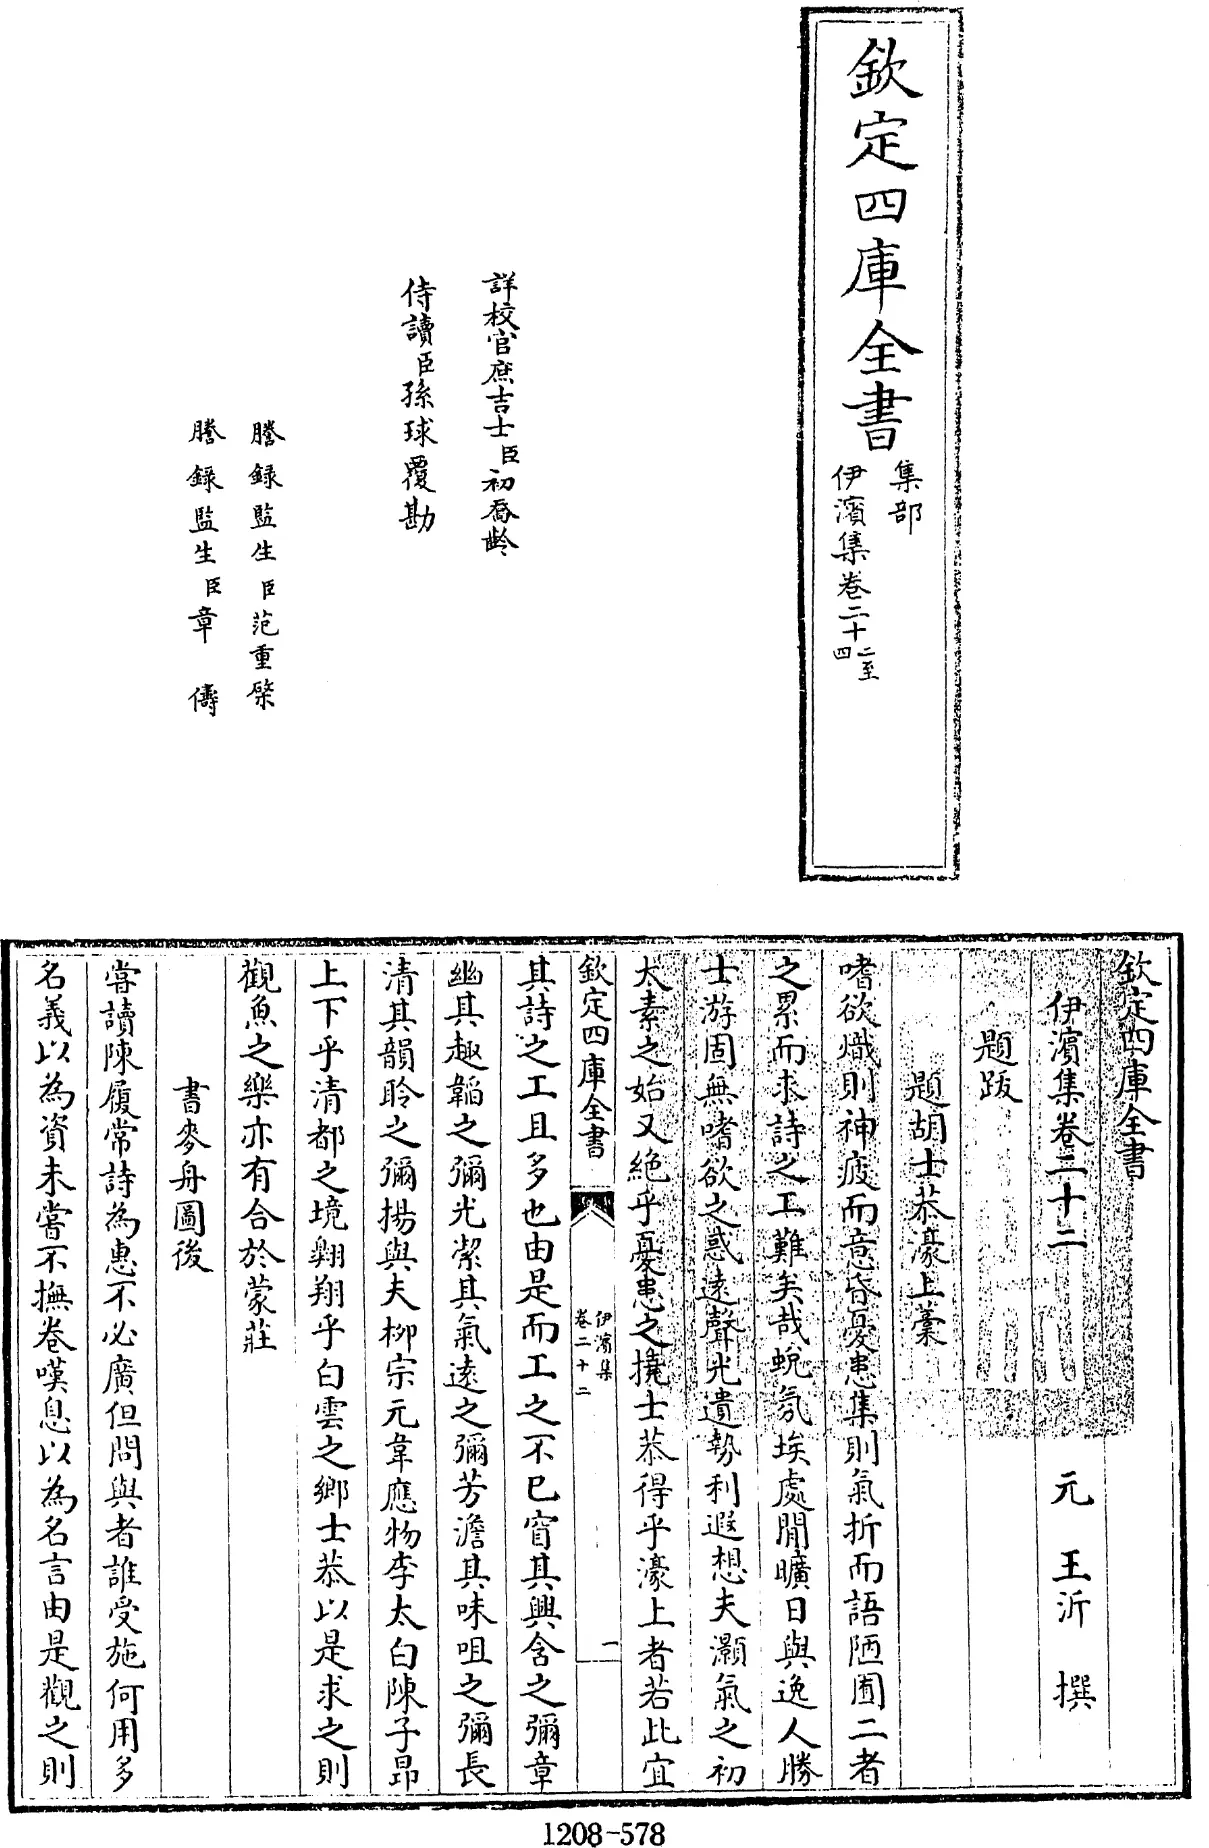 欽定四庫全書
集部
伊濱集卷二十二至四
詳校官庶吉士臣初喬齡
侍讀臣孫球覆勘
謄錄監生臣范重棨
謄錄監生臣章儔
欽定四庫全書
伊濱集卷二十二
元王沂撰
題跋
題胡士恭濠上藁
嗜欲熾則神疲而意昏憂患集則氣折而語陋囿二者
之累而求詩之工難矣哉蛻氛埃處閒曠日與逸人勝
士游固無嗜欲之惑遠聲光遺勢利遐想夫灝氣之初
太素之始又絶乎憂患之撓士恭得乎濠上者若此宜
欽定四庫全書
伊濱集
卷二十二
一
其詩之工且多也由是而工之不已窅其興含之彌章
幽其趣韜之彌光潔其氣遠之彌芳澹其味咀之彌長
清其韻聆之彌揚與夫柳宗元韋應物李太白陳子昂
上下乎清都之境翺翔乎白雲之鄉士恭以是求之則
觀魚之樂亦有合於蒙莊
書麥舟圖後
嘗讀陳履常詩為惠不必廣但問與者誰受施何用多
名義以為資未嘗不撫卷嘆息以為名言由是觀之則
1208-578